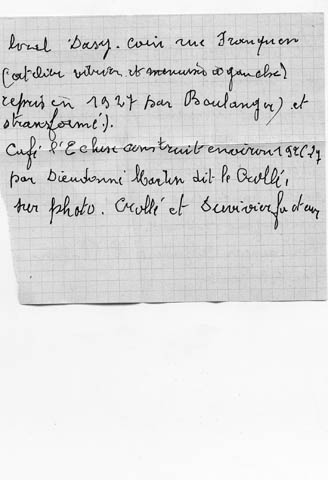 local Dasy. coin rue Franquen
(atelier vitrier et menuisié à gauche)
repris en 1927 par Boulanger) et
transformé).
Café l'Ecluse construit environ
par Dieudonné Martin dit le Crollé,
sur photo. Crollé et Duvivier facteur